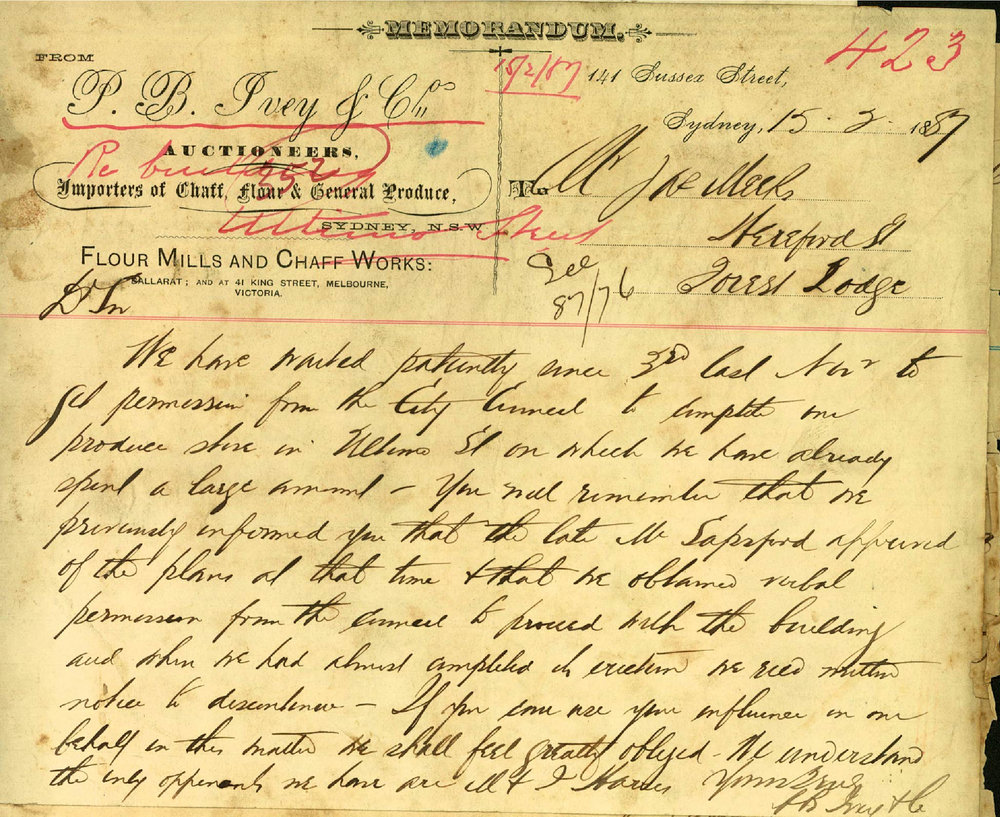 MEMORANDUM.
423
FROM
18/2/87
141 Sussex Street,
P. B. Ivey & Co
Sydney, 15. 2. 1887
AUCTIONEERS,
Re building
Importers of Chaff, Flour & General Produce,
To Mr
SYDNEY, N.S.W.
Ultimo Street
Hereford St
FLOUR MILLS AND CHAFF WORKS:
See
87/76
Forest Lodge
BALLARAT; AND AT 41 KING STREET, MELBOURNE,
VICTORIA.
Dr Sir
We have waited patiently since 3rd last Novr to
get permission from the City Council to complete our
produce store in Ultimo St on which we have already
spent a large amount – You will remember that we
previously informed you that the late Mr Sapsford approved
of the plans at that time & that we obtained verbal
permission from the council to proceed with the building
and when we had almost completed its erection we recd written
notice to discontinue – If you can use your influence in our
behalf in this matter we shall feel greatly obliged – We understand
the only opponents we have are M & J
Yours truly
P B Ivey & Co